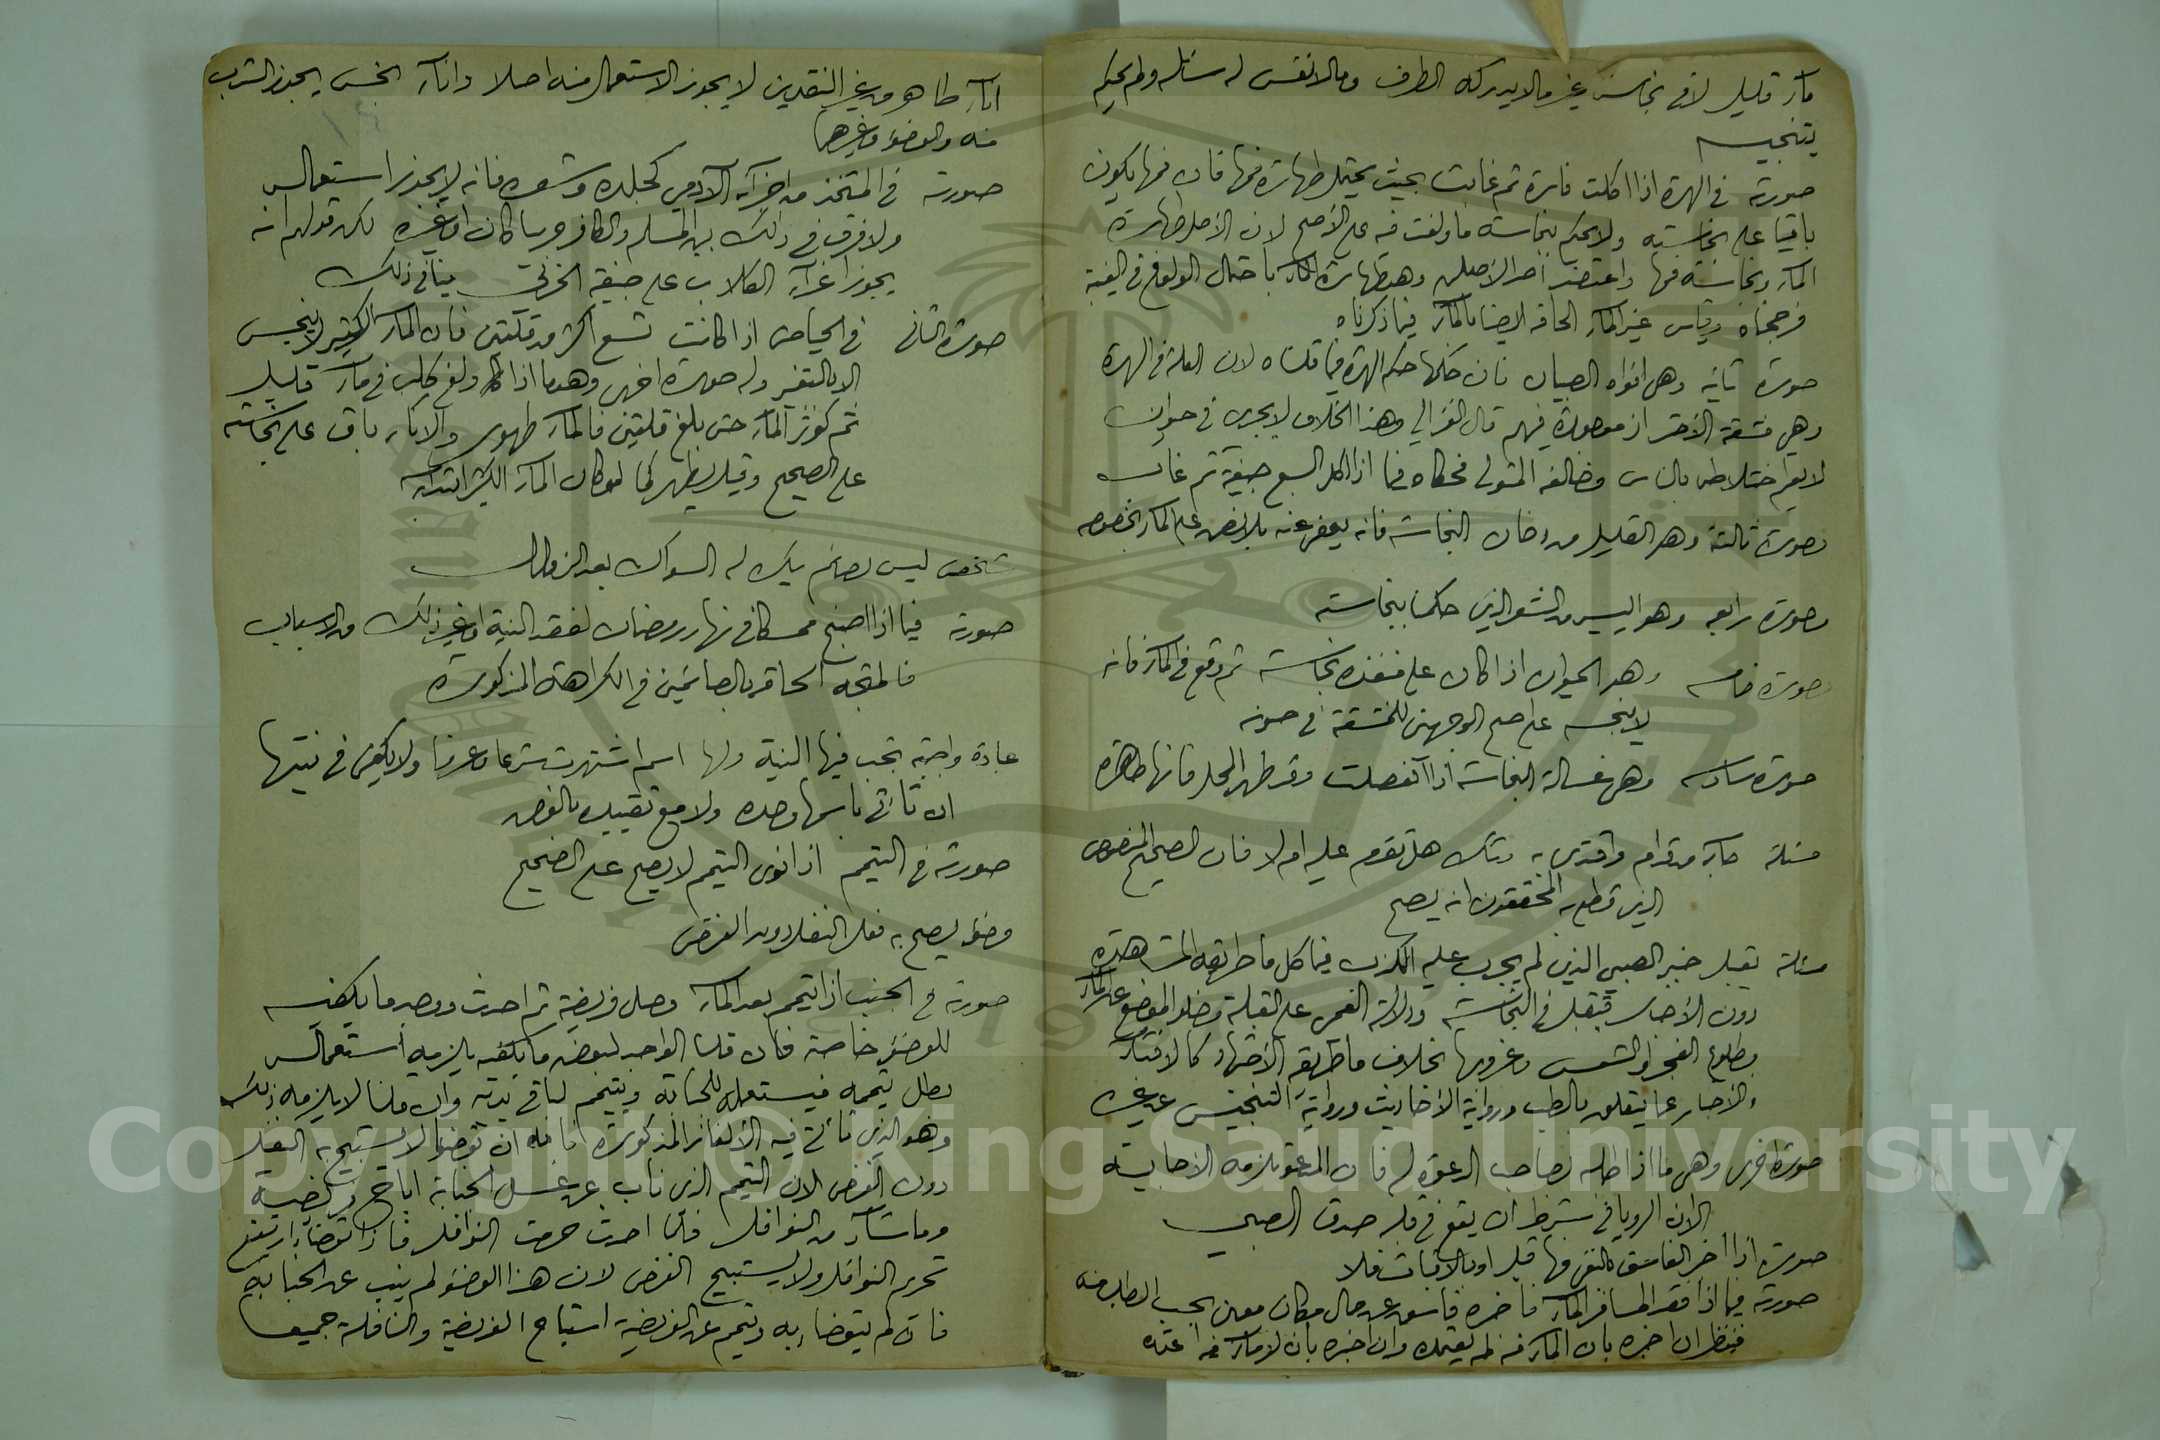 ماء قليل لاقى نجاسة غير مالا يدركه الطرف ومالا نفس له سائله ولم يحكم
بتنجيسه
صورته في الهرة اذا اكلت فارة ثم غابت بحيث يحتمل طهارة فمها فان فمها يكون
باقيا على نجاسته ولا يحكم بنجاسة ما ولغت فيه على الأصح لان الأصل طهارة
الماء ونجاسة فمها واعتضد احد الأصلين وهو طهارة الماء باحتمال الولوغ في الغيبة
فرجحناه وقياس غير الماء الحاقه ايضا بالماء فيما ذكرناه
صورة ثانيه وهي افواه الصبيان فان حكمها حكم الهرة فيما قلناه لان العلة في الهرة
وهي مشقة الأحتراز موجودة فيهم قال الغزالي وهذا الخلاف لا يجري في حيوان
لا يعم اختلاطه بالناس وخالفه المتولي فحكاه فيما اذا اكل السبع جيفة ثم غاب
وصورة ثالثة وهو القليل من دخان النجاسة فانه يعفى عنه بل نص على الماء بخصوصه
وصورة رابعه وهو اليسير من الشعر الذي حكمنا بنجاسته
وصورة خامسه وهو الحيوان اذا كان على منفذه نجاسة ثم وقع في الماء فانه
لا ينجسه على اصح الوجهين للمشقة في صونه
صورة سادسه وهي غسالة النجاسة اذا انفصلت وقد طهر المحل فانها طاهرة
مسئلة جاء من قدام واقتدى به وشك هل تقدم عليه ام لا فان الصحيح المنصوص
الذي قطع به المحققون انه يصح
مسئلة يقبل خبر الصبي الذي لم يجرب عليه الكذب فيما كل ما طريقه المشاهدة
دون الأخبار فيقبل في النجاسة ودلالة الغمى على القبلة وخلو الموضع عن الماء
وطلوع الفجر والشمس وغروبها بخلاف ما طريقه الأجتهاد كالافتاء
والأخبار عما يتعلق بالطب ورواية الاحاديث ورواية التنجيس عن غيره
صورة اخرى وهي ما اذا طلبه لصاحب الدعوة له فان المدعو يلزمه الاجابة
الا ان الروياني شرط ان يقع في قلبه صدق الصبي
صورة اذا اخبر الفاسق بالنفي فيها قبل او بالاثبات فلا
صورته فيما اذا فقد المسافر الماء فاخبره فاسق عن حال مكان معين يجب الطلب منه
فينظر ان اخبره بان الماء فيه لم يعتمده وان اخبره بان لا ماء فيه اعتمده
اناء طاهر من غير النقدين لا يجوز الاستعمال منه اصلا واناء نجس يجوز الشرب
منه والوضوء وغيرهما
صورته في المتخذ من اجزاء الآدمي كجلده وشعره فانه لا يجوز استعماله
ولا فرق في ذلك بين المسلم والكافر حربيا كان او غيره لكن قولهم انه
يجوز اغراء الكلاب على جيفة الحربي ينافي ذلك
صورة الثاني في الحياض اذا كانت تسع اكثر من قلتين فان الماء الكثير لا ينجس
الا بالتغير وله صورة اخرى وهو ما اذا ولغ كلب في ماء قليل
ثم كوثر الماء حتى بلغ قلتين فالماء طهور والاناء باق على نجاسته
على الصحيح وقيل يطهر كما لو كان الماء الكثير ابتداء
شخص ليس بصائم يكره له السواك بعد الزوال
صورته فيما اذا اصبح ممسكا في نهار رمضان لفقد النية او غير ذلك من الاسباب
فالمتجه الحاقه بالصائمين في الكراهة المذكورة
عبادة واجبة تجب فيها النية ولها اسم اشتهرت شرعا وعرفا ولا يكفي في نيتها
ان تاتي باسمها وحده ولا مع تقييده بالفرض
صورته في التيمم اذا نوى التيمم لا يصح على الصحيح
وضوء يصح به فعل النفل دون الفرض
صورته في الجنب اذا تيمم بعد الماء وصلى فريضة ثم احدث ووجد ما يكفيه
للوضوء خاصة فان قلنا الواجد لبعض ما يكفيه يلزمه استعماله
بطل تيممه فيستعمله للجنابة ويتيمم لباقي بدنه وان قلنا لا يلزمه ذلك
وهو الذي تأتي فيه الألغاز المذكورة فانه ان توضأ لاستبيح به النفل
دون الفرض لان التيمم الذي ناب عن غسل الجنابة اباح فريضة
وما شاء من النوافل فلما احدث حرمت النوافل فاذا توضأ ارتفع
تحريم النوافل ولا يستبيح الفرض لان هذا الوضوء لم ينب عن الجنابة
فان لم يتوضأ به وتيمم عن الفريضة استباح الفريضة والنافلة جميعا
Copyright © King Saud University